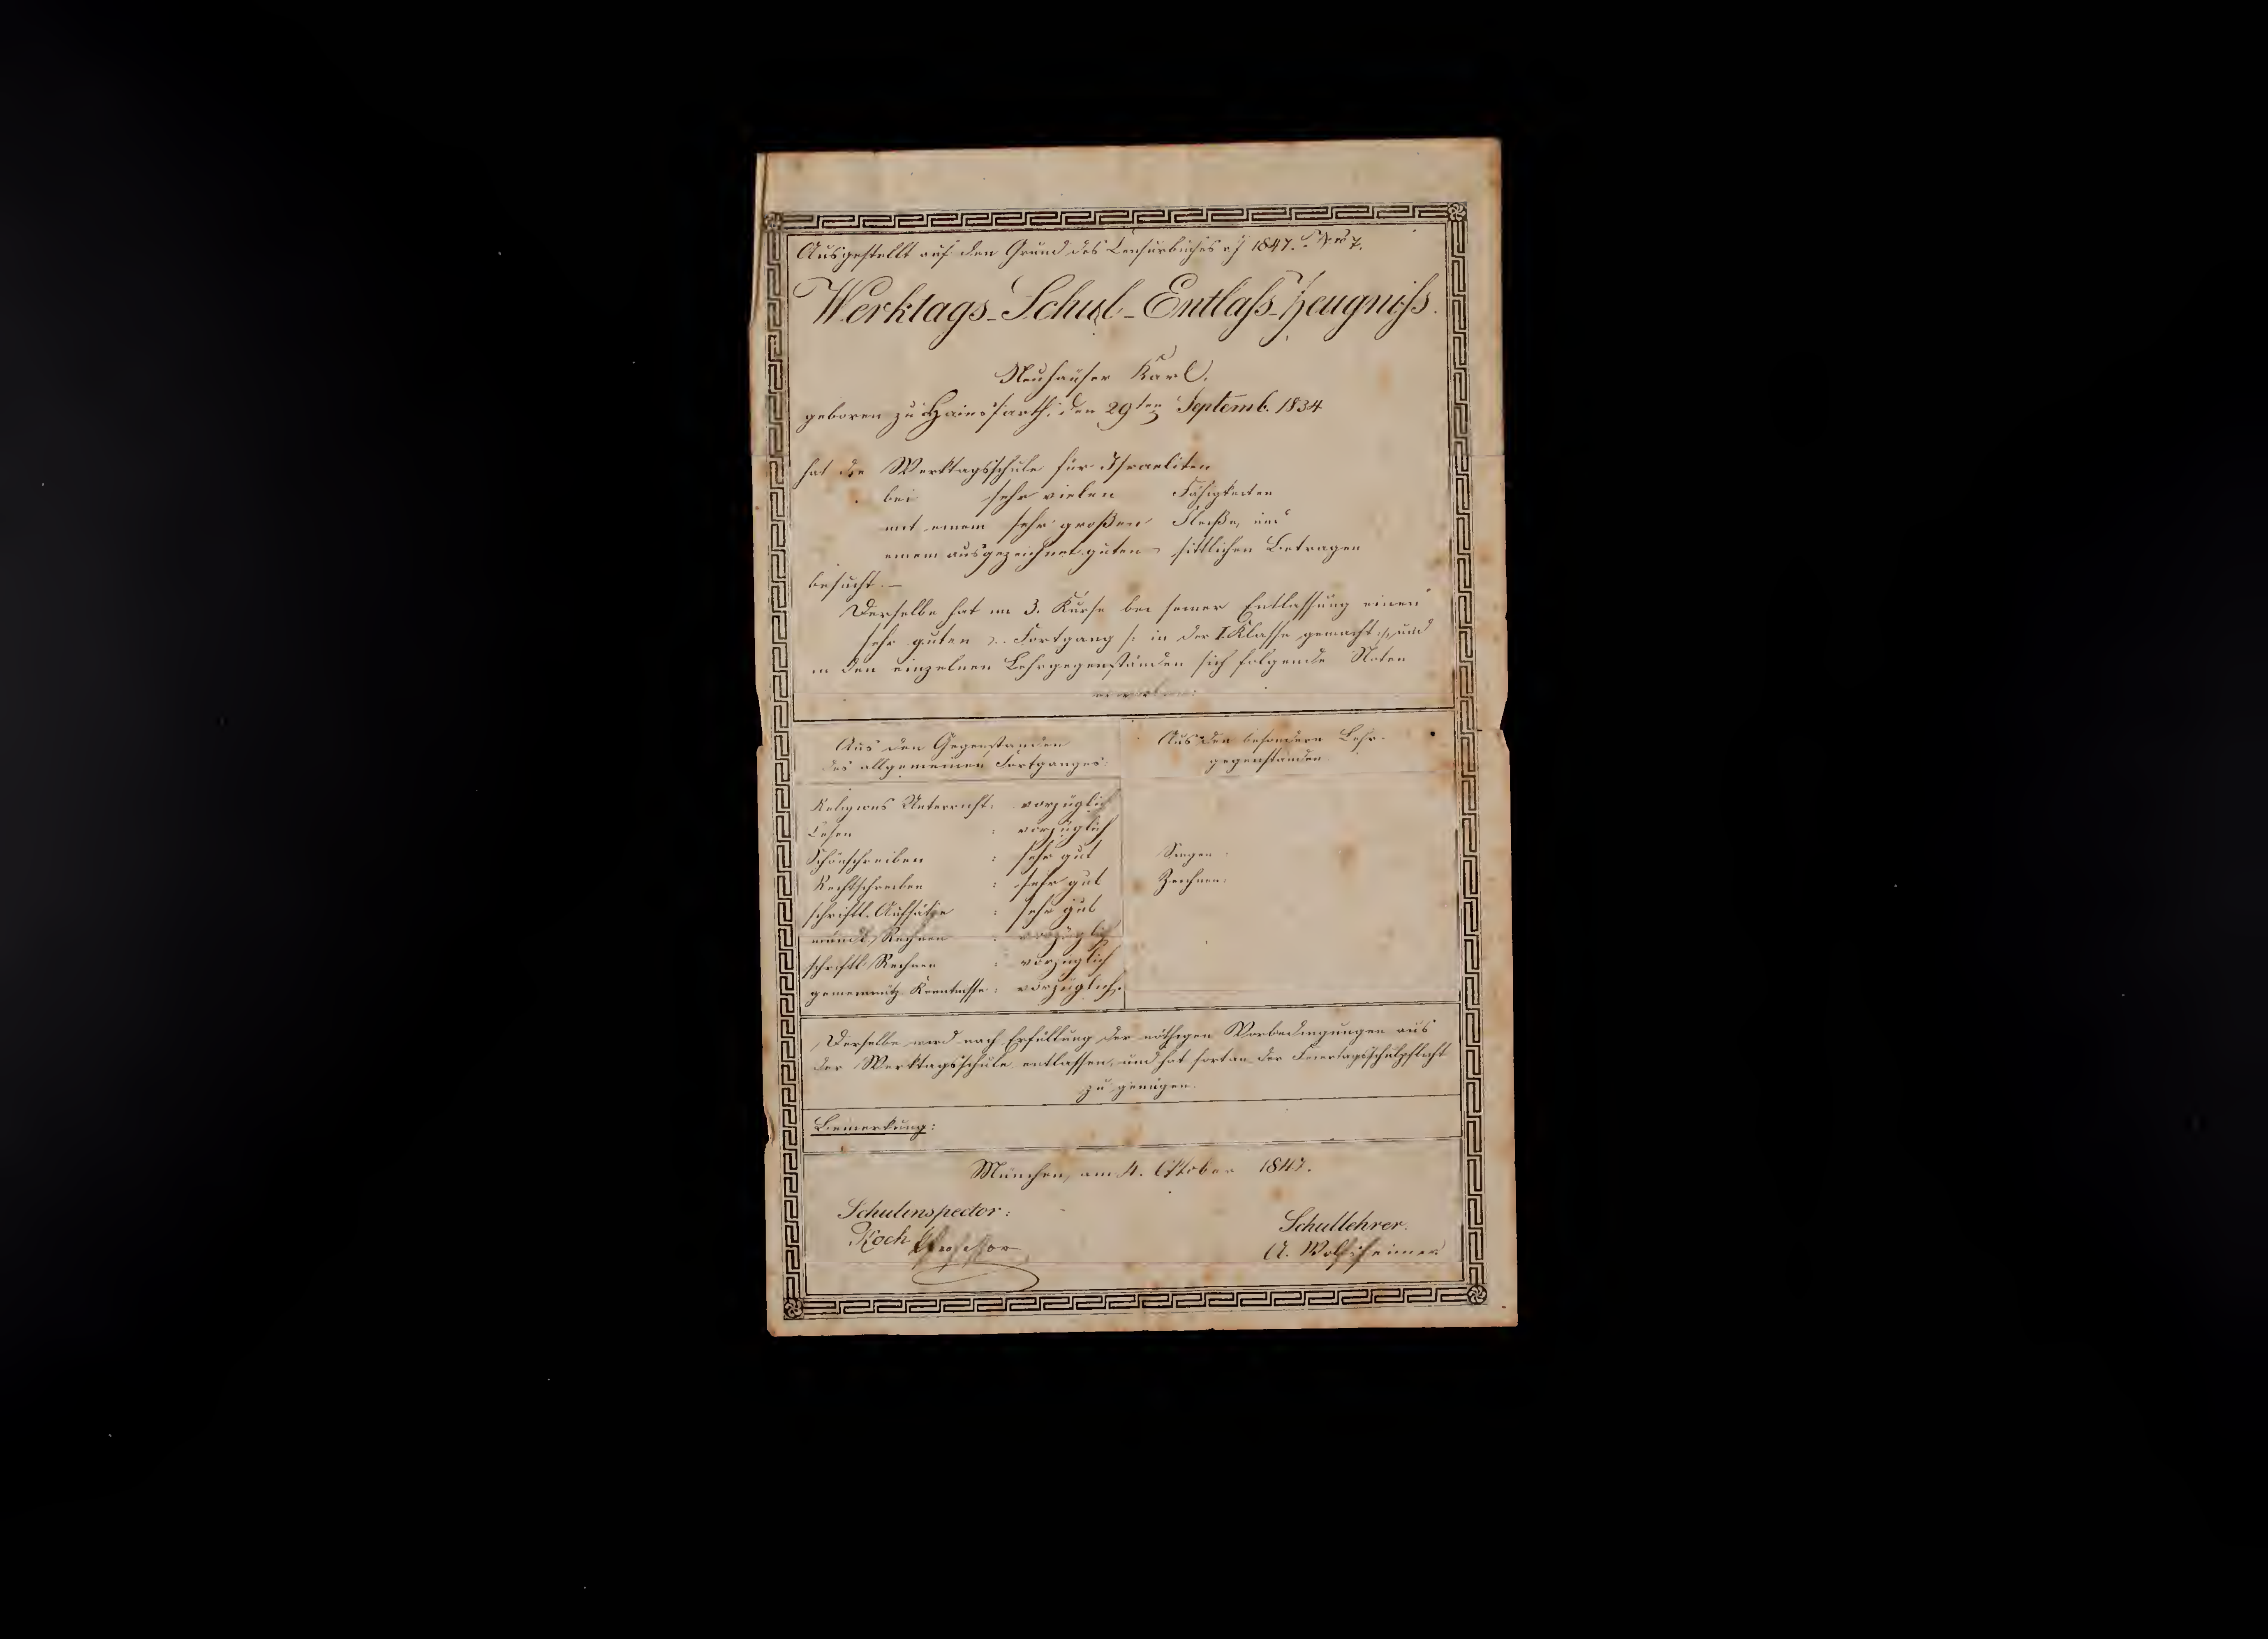 Ausgestellt auf den Grund des Censurbuches v J 1847. S. No 7.
Werktags-Schul-Entlaß-Zeugniß.
Neuhauser Karl.
geboren zu Hainsfarth, den 29ten Septemb. 1834
hat die Werktagsschule für Israeliten
bei sehr vielen Fähigkeiten
mit einem sehr großen Fleiße, und
einem ausgezeichnet guten sittlichen Betragen
besucht. —
Derselbe hat im 3. Kurse bei seiner Entlassung einen
sehr guten Fortgang /: in der I. Klasse gemacht :/, und
in den einzelnen Lehrgegenständen sich folgende Noten
erworben:
Aus den Gegenständen
des allgemeinen Fortganges:
Religions Unterricht: vorzüglich
Lesen : vorzüglich
Schönschreiben : sehr gut
Rechtschreiben : sehr gut
schriftl. Aufsätze : sehr gut
mündl. Rechnen : vorzüglich
schriftl. Rechnen : vorzüglich
gemeinnütz. Kenntnisse: vorzüglich.
Aus den besondern Lehr-
gegenständen.
Singen:
Zeichnen:
Derselbe wird nach Erfüllung der nöthigen Vorbedingungen aus
der Werktagsschule entlassen, und hat fortan der Feiertagsschulpflicht
zu genügen.
Bemerkung:
München, am 4. Oktober 1847.
Schulinspector:
Koch Professor
Schullehrer.
A. Wolfsheimer